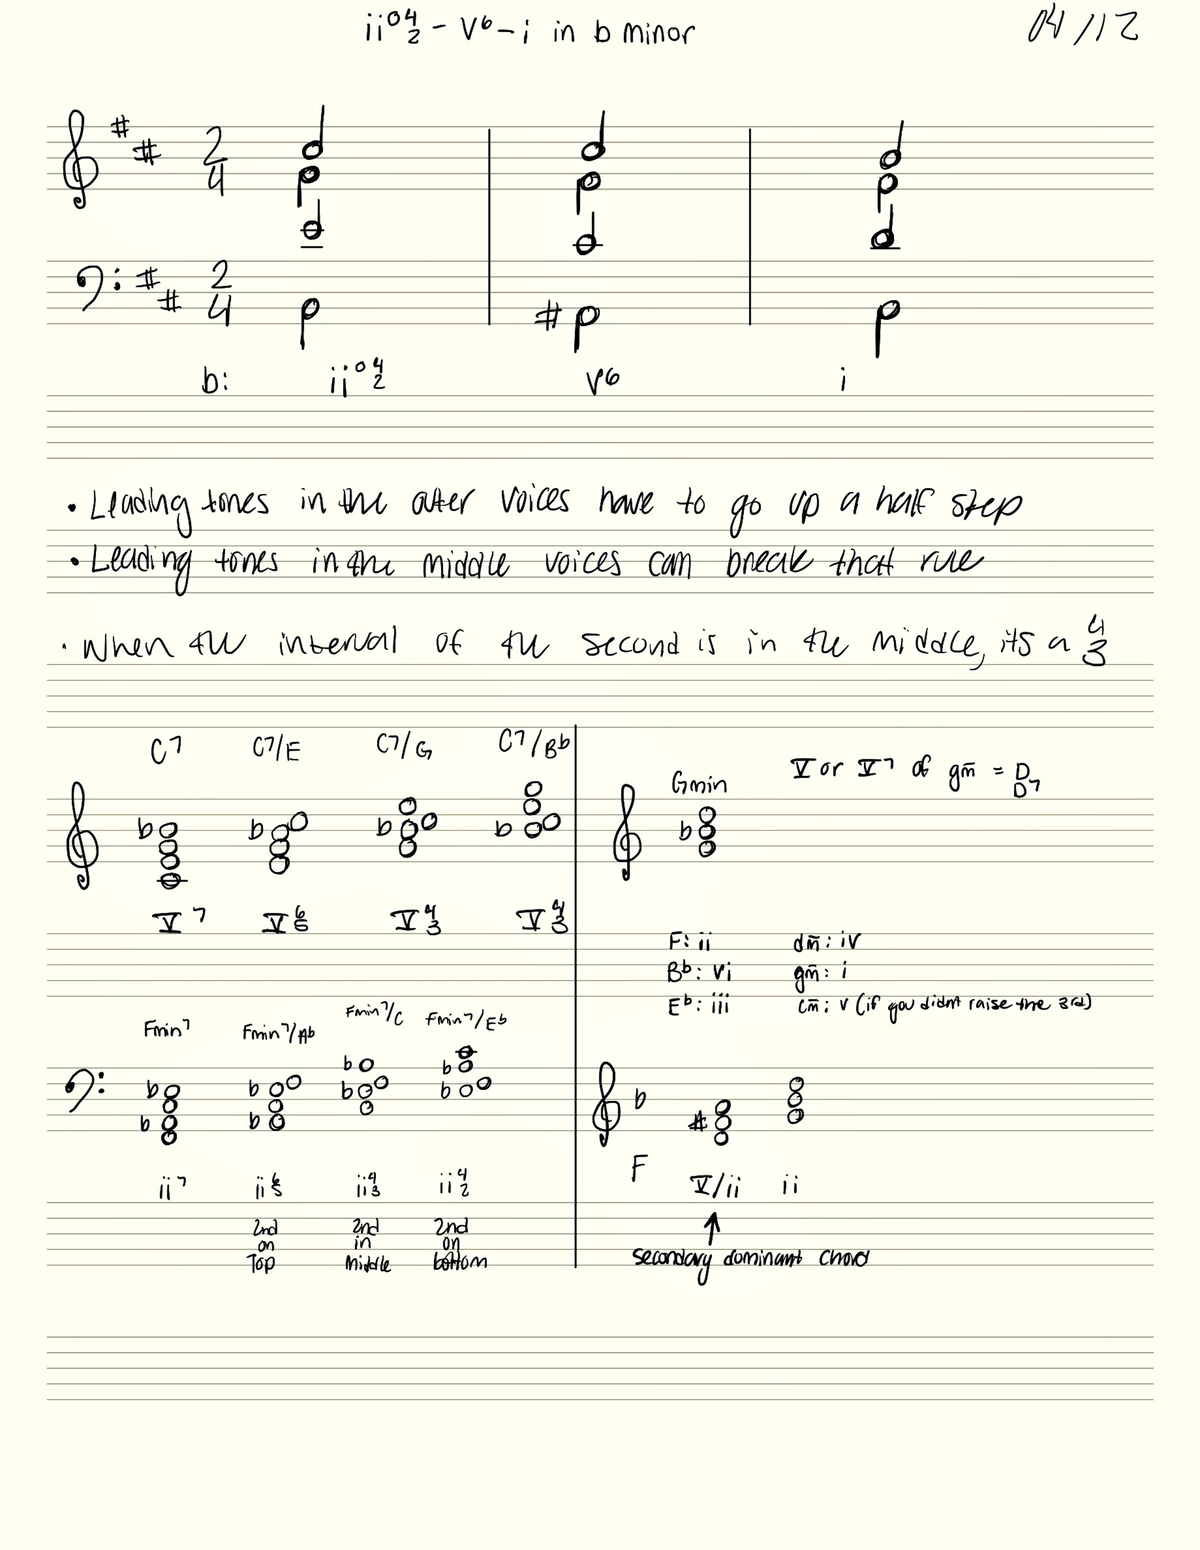 ii°4/2 - V6 - i in b minor 04/12
# # 2/4
# # 2/4 #
b: ii°4/2 V6 i
• Leading tones in the outer voices have to go up a half step
• Leading tones in the middle voices can break that rule
• When the interval of the second is in the middle, its a 4/3
C7 C7/E C7/G C7/Bb
b b b b
V7 V6/5 V4/3 V4/3
Fmin7 Fmin7/Ab Fmin7/C Fmin7/Eb
b b b b b b b b
ii7 ii6/5 ii4/3 ii4/2
2nd on Top
2nd in Middle
2nd on bottom
Gmin V or V7 of gm̄ = D
D7
b
F: ii dm̄: iv
Bb: vi gm̄: i
Eb: iii cm̄: v (if you didnt raise the 3rd)
b #
F V/ii ii
↑
secondary dominant chord